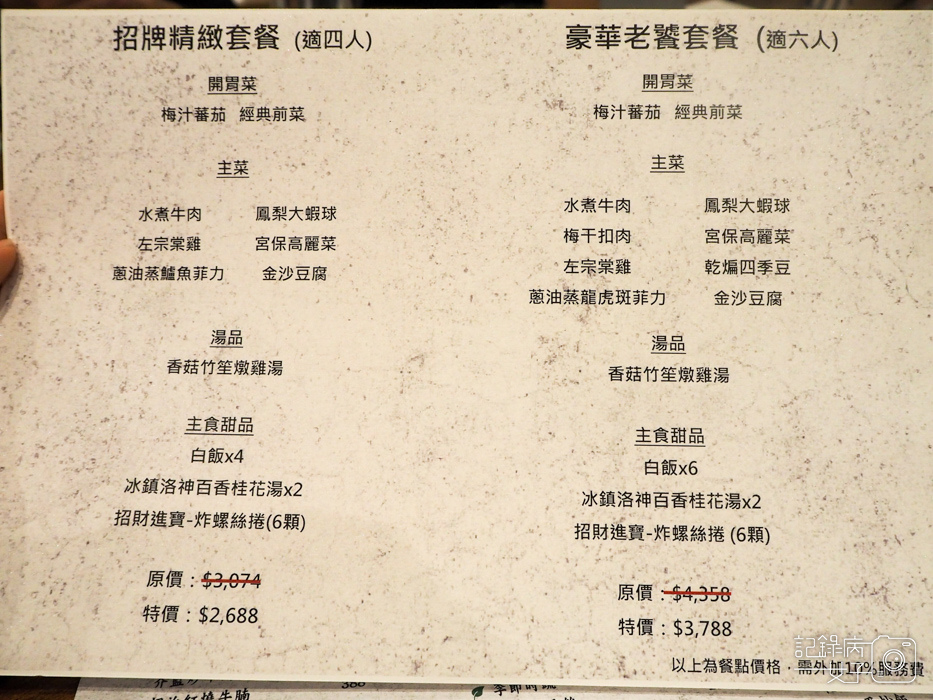 招牌精緻套餐 (適四人)
開胃菜
梅汁蕃茄 經典前菜
主菜
水煮牛肉 鳳梨大蝦球
左宗棠雞 宮保高麗菜
蔥油蒸鱸魚菲力 金沙豆腐
湯品
香菇竹笙燉雞湯
主食甜品
白飯x4
冰鎮洛神百香桂花湯x2
招財進寶-炸螺絲捲(6顆)
原價：$3,074
特價：$2,688
豪華老饕套餐 (適六人)
開胃菜
梅汁蕃茄 經典前菜
主菜
水煮牛肉 鳳梨大蝦球
梅干扣肉 宮保高麗菜
左宗棠雞 乾煸四季豆
蔥油蒸龍虎斑菲力 金沙豆腐
湯品
香菇竹笙燉雞湯
主食甜品
白飯x6
冰鎮洛神百香桂花湯x2
招財進寶-炸螺絲捲 (6顆)
原價：$4,358
特價：$3,788
以上為餐點價格，需外加10%服務費
記錄病
388